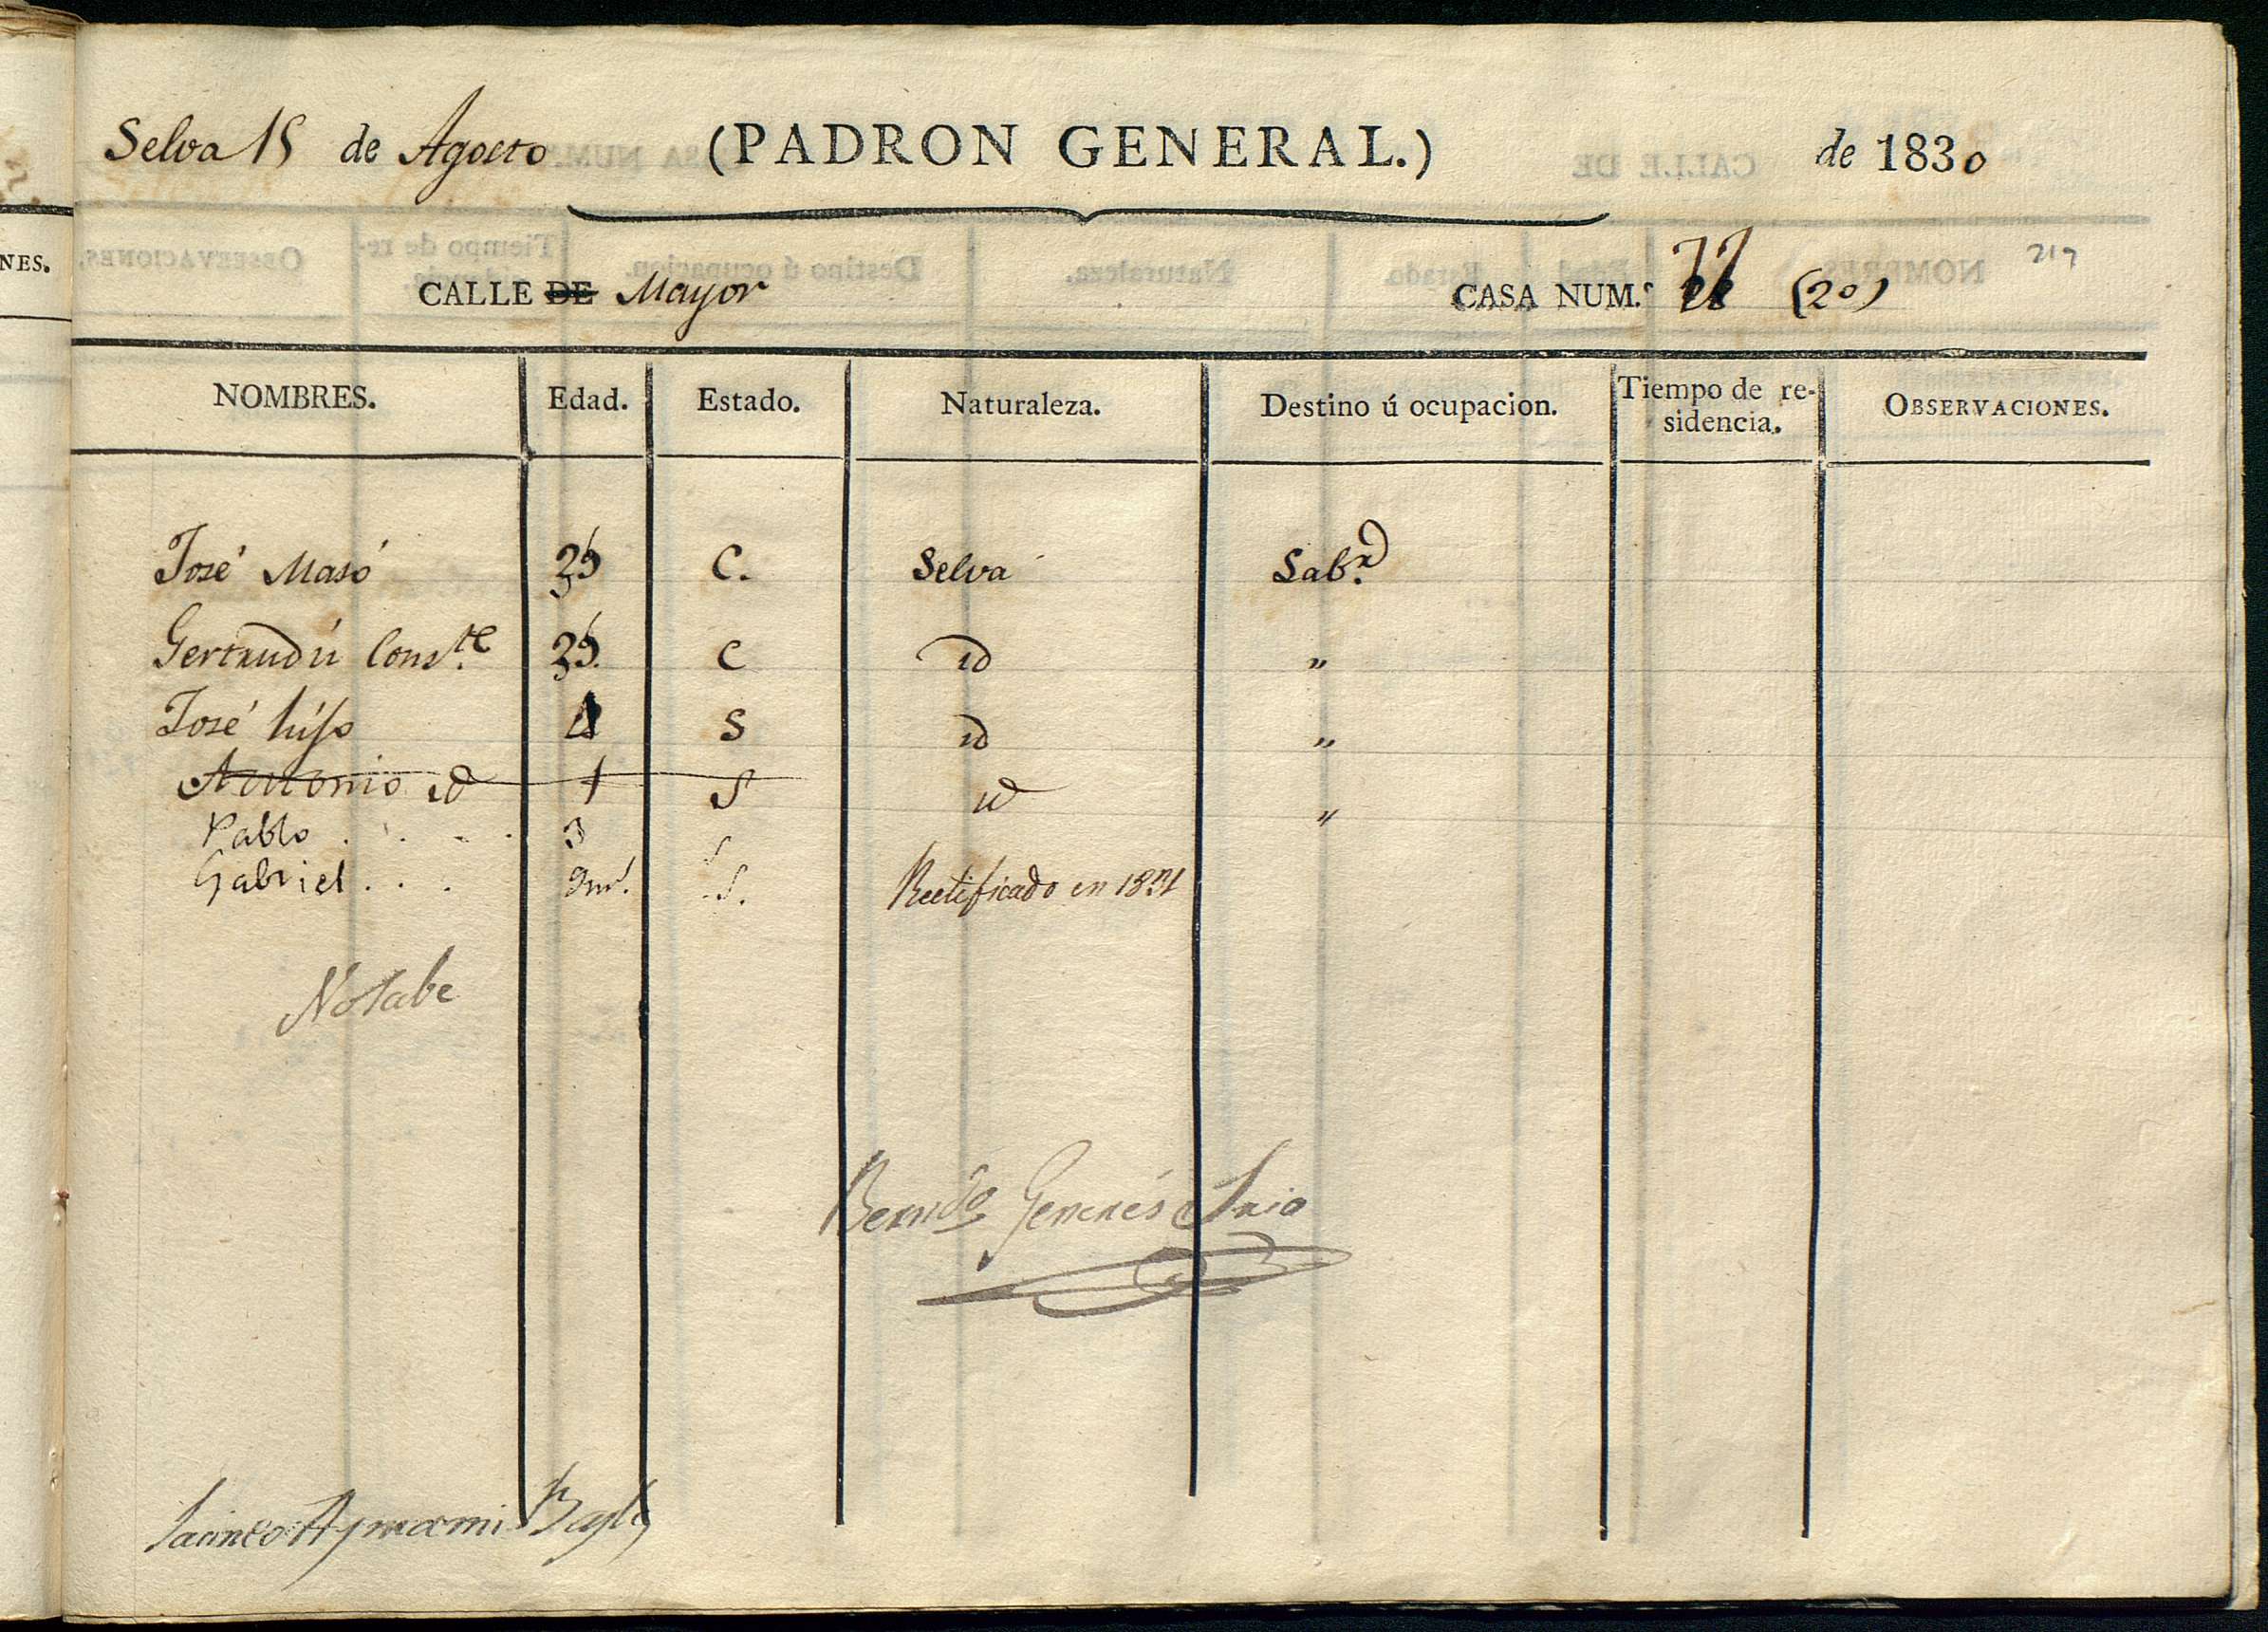 Selva 15 de Agosto (PADRON GENERAL.) de 1830
219
CALLE DE Mayor CASA NUM.º 77 (20)
NES.
NOMBRES. Edad. Estado. Naturaleza. Destino ú ocupacion. Tiempo de re-sidencia. OBSERVACIONES.
José Masó C. Selva Lab.r
Gertrudis Cons.te C id "
José hijo 4 S id "
Antonio id 1 S id "
Pablo . . . . 3 S
Gabriel . . . S. Rectificado en 1831
Notabe
Bern.do Generés Srio
Jacinto Aymami Bayle